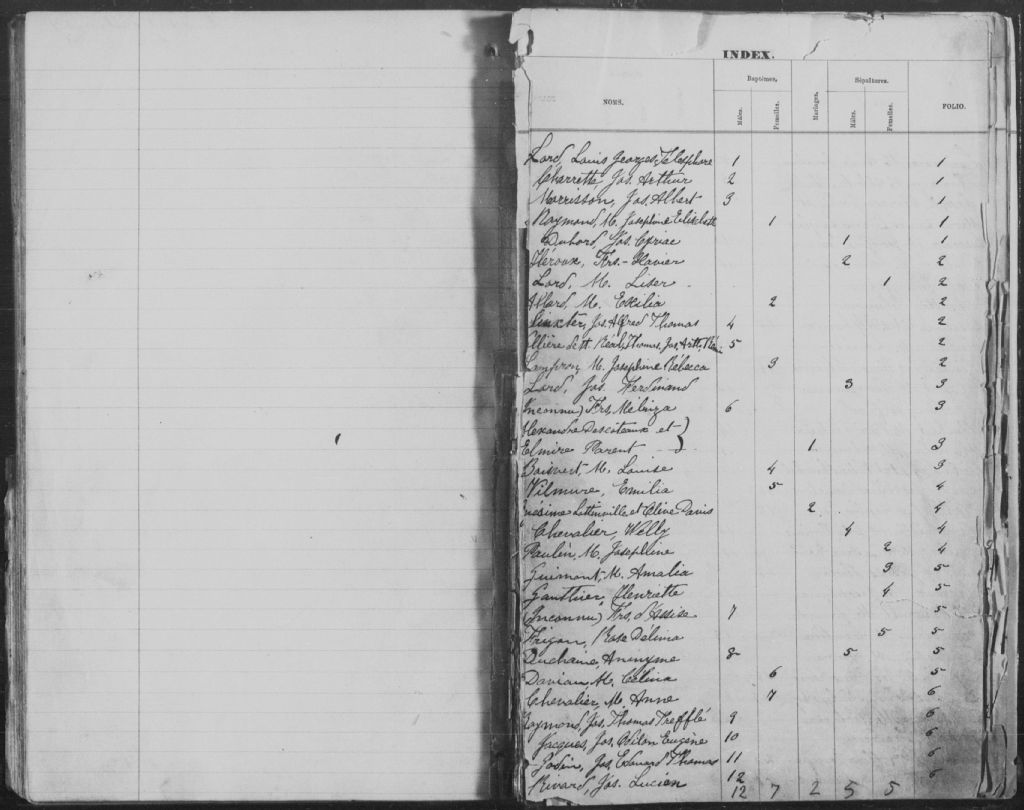 INDEX.
NOMS. Baptêmes, Mariages. Sépultures. FOLIO.
Mâles. Femelles. Mâles. Femelles.
Lord, Louis Georges Télesphore 1 1
Charrette, Jos. Arthur 2 1
Morrisson, Jos. Albert 3 1
Raymond, M. Josephine Elisabeth 1 1
Dubord, Jos. Cyriac 1 1
Héroux, Frs.-Xavier 2 2
Lord, M. Liser 1 2
Allard, M. Exilia 2 2
Jos. Alfred Thomas 4 2
Réal, Thomas, Jos. 5 2
Lampron, M. Josephine Rébecca 3 2
Lord, Jos. Ferdinand 3 3
(Inconnu) Frs. 6 3
Alexandre Descoteaux et )
Elmire Parent ) 1 3
Boisvert, M. Louise 4 3
Vilmure, Emilia 5 4
Onésime et Olive Davis 2 4
Chevalier, Willy 4 4
Paulin, M. Josephine 2 4
Guimont, M. Amalia 3 5
Gauthier, Henriette 4 5
(Inconnu) Frs. d'Assise 7 5
Frigon, Rose Délima 5 5
Duchaine, Anonyme 8 5 5
M. Célina 6 5
Chevalier, M. Anne 7 6
Raymond, Jos. Thomas Trefflé 9 6
Jacques, Jos. Odilon Eugène 10 6
Godin, Jos. Edouard Thomas 11 6
Rivard, Jos. Lucien 12 6
12 7 2 5 5